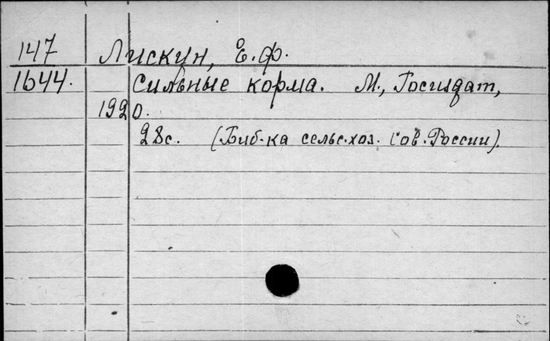 147 Лискун, Е.Ф.
1644. Сильные корма. М., Госиздат,
1920.
28с. (Биб-ка сельс.хоз. Сов.России).